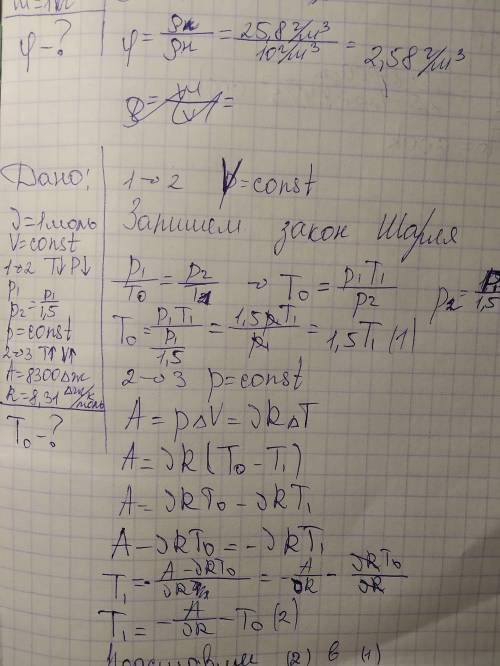 φ-? φ = ρн/ρн = 25,8 г/м³ / 10 г/м³ = 2,58 г/м³
Дано:
ν=1 моль
V=const
1→2 T↓ P↓
p₁
p₂=p₁/1,5
p=const
2→3 T↑ V↑
A=8300 Дж
R=8,31 Дж/к моль
T₀-?
1→2 V=const
Запишем закон Шарля
p₁/T₀ = p₂/T₁ → T₀ = p₁T₁/p₂ p₂=p₁/1,5
T₀ = p₁T₁/(p₁/1,5) = 1,5p₁T₁/p₁ = 1,5T₁ (1)
2→3 p=const
A = pΔV = νRΔT
A = νR(T₀ - T₁)
A = νRT₀ - νRT₁
A - νRT₀ = -νRT₁
T₁ = -(A - νRT₀)/νR = -A/νR - νRT₀/νR
T₁ = -A/νR - T₀ (2)
(2) в (1)